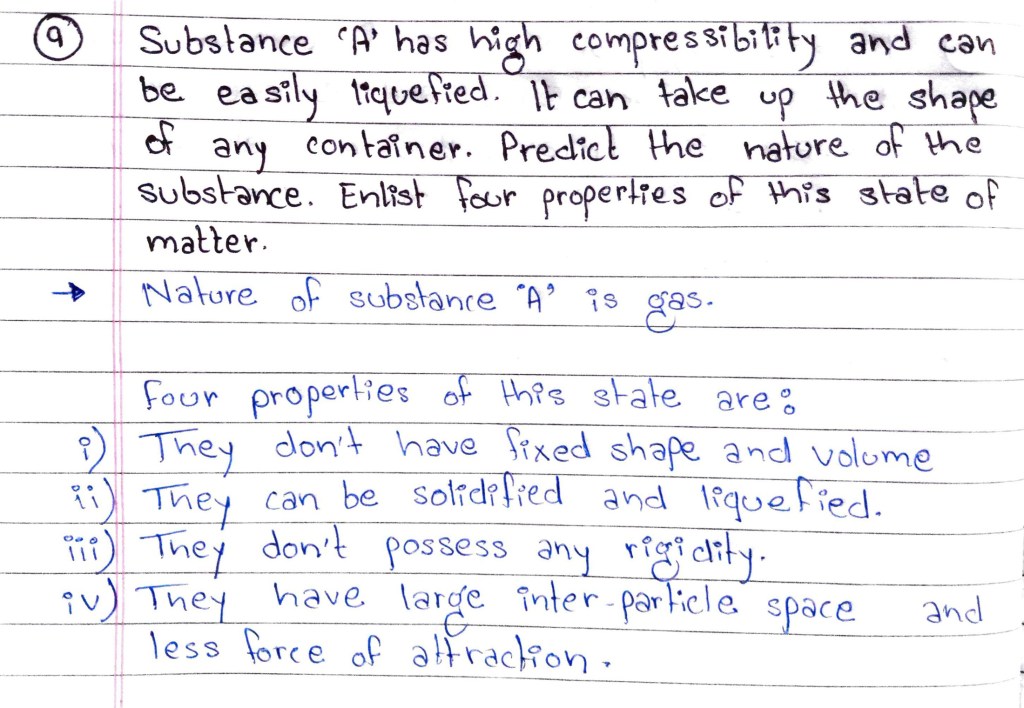 9 Substance 'A' has high compressibility and can
be easily liquefied. It can take up the shape
of any container. Predict the nature of the
substance. Enlist four properties of this state of
matter.
→ Nature of substance "A" is gas.
Four properties of this state are:
i) They don't have fixed shape and volume
ii) They can be solidified and liquefied.
iii) They don't possess any rigidity.
iv) They have large inter-particle space and
less force of attraction.